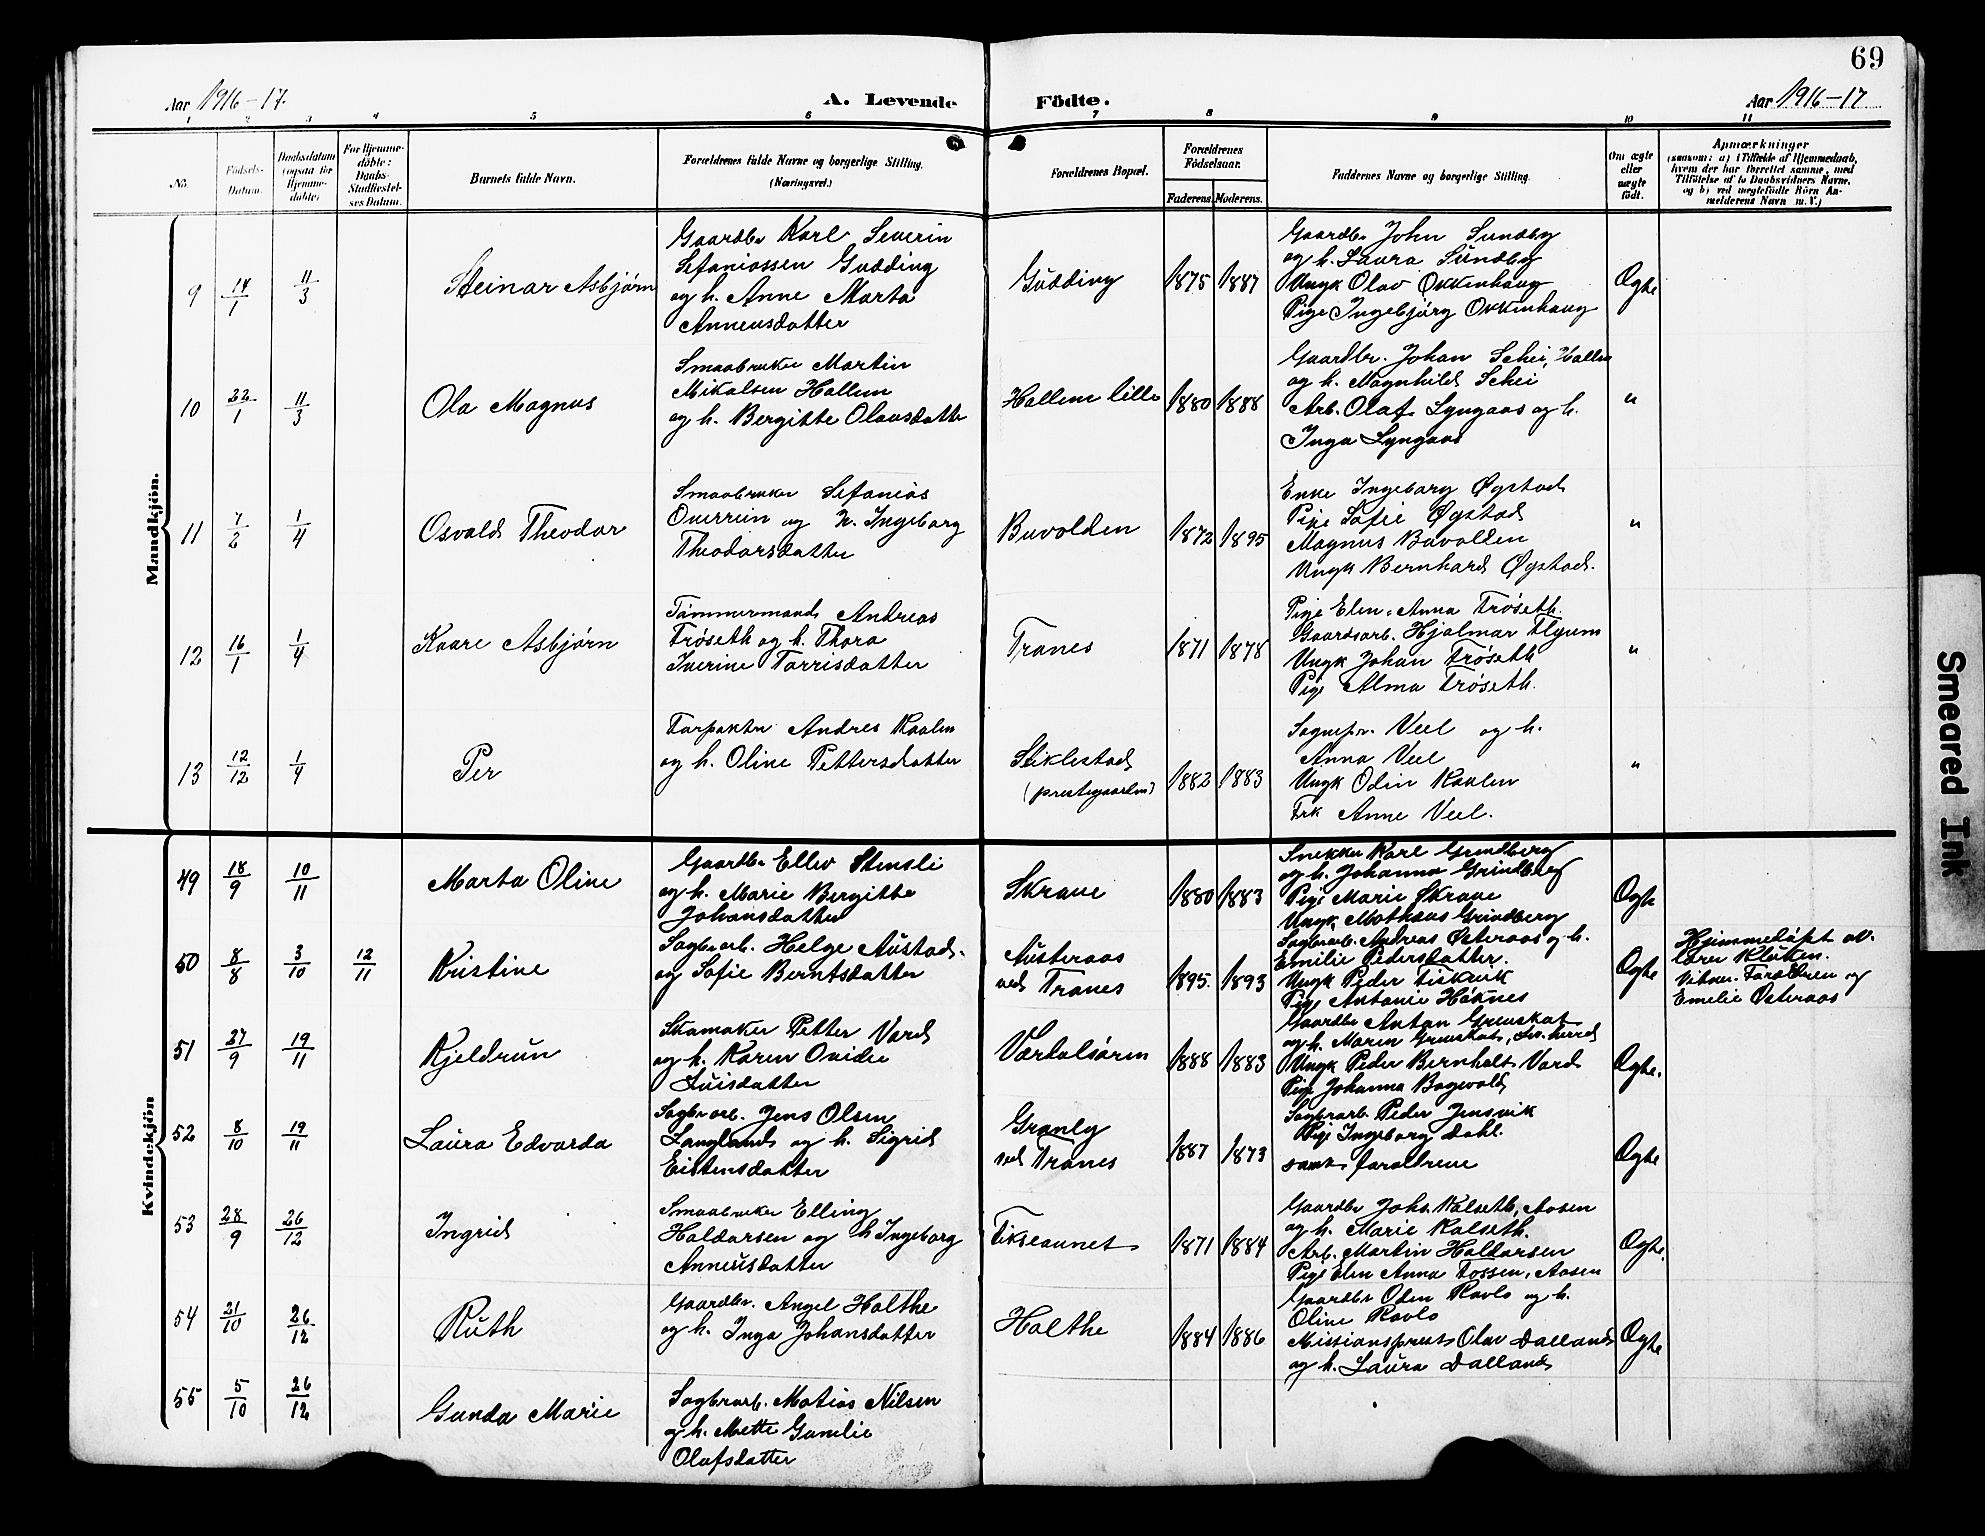 69
Aar 1916-17. A. Levende Födte. Aar 1916-17
1 2 3 4 5 6 7 8 9 10 11
No.
Födsels-Datum.
Daabsdatum (ogsaa for Hjemmedöbte)
For Hjemmedöbte: Daabs-Stadfæstelses Datum.
Barnets fulde Navn.
Forældrenes fulde Navne og borgerlige Stilling. (Næringsvei.)
Forældrenes Bopæl.
Forældrenes Födselsaar.
Faderens. Moderens.
Faddernes Navne og borgerlige Stilling.
Om ægte eller uægte födt.
Anmærkninger
(saasom: a) i Tilfælde af Hjemmedaab, hvem der har forrettet samme, med Tilföielse af to Daabsvidners Navne, og b) ved uægtefödte Börn Anmelderens Navn m. V.)
Mandkjön.
9 14/1 11/3 Steinar Asbjørn
Gaardbr Karl Severin
Stefaniassen Gudding
og h. Anne Marta
Anneusdatter
Gudding 1875 1887
Gaardbr John Sundby
og h. Laura Sundby
Ungk Olav Okkenhaug
Pige Ingebjørg Okkenhaug
Ægte
10 22/1 11/3 Ola Magnus
Smaabruker Martin
Mikalsen Hallem
og h. Bergitte Olausdatter
Hallem lille 1880 1888
Gaardbr. Johan Schei, Hallem
og h. Magnhild Schei
Arb. Olaf Lyngaas og h.
Inga Lyngaas
"
11 7/2 1/4 Osvald Theodor
Smaabruker Stefanias
Overrein og h. Ingeborg
Theodorsdatter
Buvolden 1872 1895
Enke Ingeborg Øgstad
Pige Sofie Øgstad
Magnus Buvolden
Ungk Bernhard Øgstad.
"
12 16/1 1/4 Kaare Asbjørn
Tømmermand Andreas
Trøseth og h. Thora
Iverine Torrisdatter
Tranes 1871 1878
Pige Elen Anna Trøseth.
Gaardsarb. Hjalmar Flyum
Ungk Johan Trøseth
Pige Alma Trøseth.
"
13 12/12 1/4 Per
Forpakter Andres Kaalen
og h. Oline Pettersdatter
Stiklestad
(prestegaarden) 1882 1883
Sognepr. Veel og h.
Anna Veel
Ungk Odin Kaalen
Frk Anne Veel.
"
Kvindekjön
49 18/9 10/11 Marta Oline
Gaardbr Ellev Stensli
og h. Marie Bergitte
Johansdatter
Skrave 1880 1883
Snekker Karl Grindberg
og h. Johanna Grindberg
Pige Marie Skrave
Ungk. Mathæus Grindberg
Ægte
50 8/8 3/10 12/11 Kristine
Sagbrarb. Helge Austad
og Sofie Berntsdatter
Austeraas
ved Tranes 1895. 1893
Sagbrarb. Andreas Østeraas og h.
Emilie Pedersdatter.
Ungk Peder Fiskvik
Pige Antonie Høknes
Ægte
Hjemmedøpt av
lærer Kluken.
Vitner: Forældrene og
Emelie Østeraas
51 27/9 19/11 Kjeldrun
Skomaker Petter Vard
og h. Karen Ovidie
Luisdatter
Værdalsøren 1888 1883
Gaardbr Anton Grevskot
og h. Maren Grevskot,
Ungk Peder Bernholt Vard
Pige Johanna Bagvold
Ægte.
52 8/10 19/11 Laura Edvarda
Sagbrarb. Jens Olsen
Langland og h. Sigrid
Eistensdatter
Granly
ved Tranes 1887 1873
Sagbrarb. Peder Jensvik
Pige Ingeborg Dahl.
samt forældrene
Ægte
53 28/9 26/12 Ingrid
Smaabruker Elling
Haldorsen og h Ingeborg
Anneusdatter
Fikseaunet 1871 1884
Gaardbr Johs. Kalseth, Aasen
og h. Marie Kalseth.
Arb. Martin Haldorsen
Pige Elen Anna Fossen, Aasen
Ægte.
54 21/10 26/12 Ruth
Gaardbr. Angel Holthe
og h. Inga Johansdatter
Holthe 1884 1886
Gaardbr Oden Ravlo og h.
Oline Ravlo
Missionsprest Olav Dalland
og h. Laura Dalland
Ægte.
55 5/10 26/12 Gunda Marie
Sagbrarb. Matias Nilsen
og h. Mette Gunelie
Olafsdatter
Smeared Ink